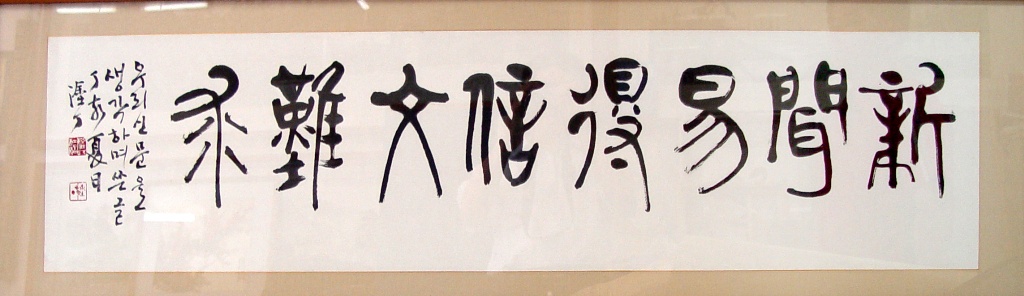 新聞易得信文難求
우리신문을
생각하며 쓴글
丁亥夏日